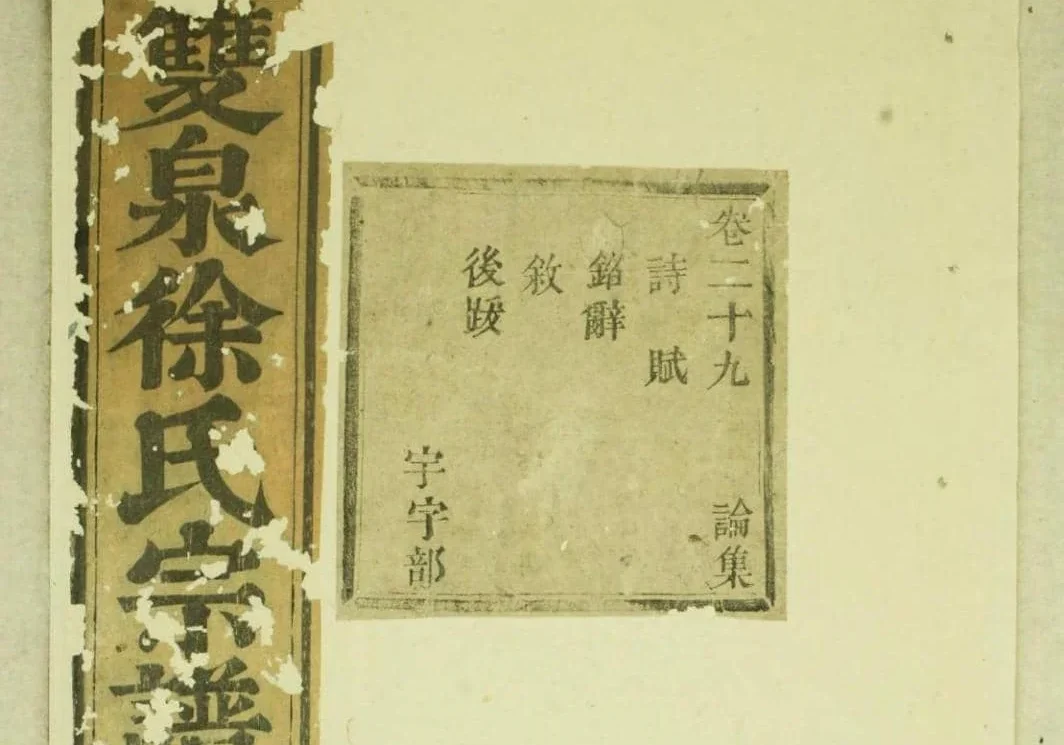 雙泉徐氏宗譜
卷二十九 論集
詩賦
銘辭
敘
後跋
宇字部